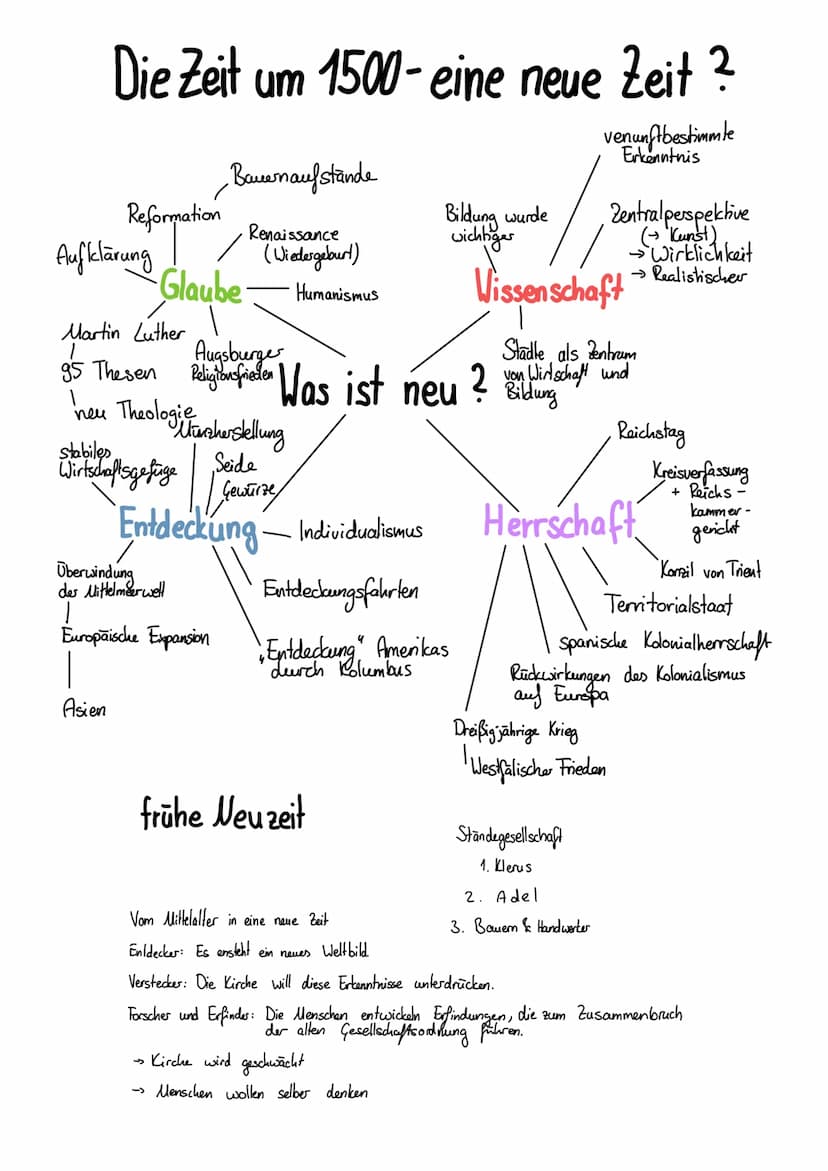 Die Zeit um 1500 - eine neue Zeit ?
Bauernaufstände
Reformation
Renaissance
(Wiedergeburt)
Aufklärung
Glaube
Humanismus
Martin Luther
95 Thesen
neu Theologie
Augsburger
Religionsfrieden
venunftbestimmte
Erkenntnis
Bildung wurde
wichtiger
Zentralperspektive
(→ Kunst)
→ Wirklichkeit
→ Realistischer
Wissenschaft
Städte als Zentrum
von Wirtschaft und
Bildung
Was ist neu ?
Münzherstellung
stabiles
Wirtschaftsgefüge
Seide
Gewürze
Entdeckung
Individualismus
Überwindung
der Mittelmeerwelt
Europäische Expansion
Asien
Entdeckungsfahrten
„Entdeckung“ Amerikas
durch Kolumbus
Reichstag
Kreisverfassung
+ Reichs-
kammer-
gericht
Herrschaft
Konzil von Trient
Territorialstaat
spanische Kolonialherrschaft
Rückwirkungen des Kolonialismus
auf Europa
Dreißigjährige Krieg
Westfälischer Frieden
frühe Neuzeit
Ständegesellschaft
1. Klerus
2. Adel
3. Bauern & Handwerker
Vom Mittelalter in eine neue Zeit
Entdecker: Es ensteht ein neues Weltbild.
Verstecker: Die Kirche will diese Erkenntnisse unterdrücken.
Forscher und Erfinder: Die Menschen entwickeln Erfindungen, die zum Zusammenbruch
der alten Gesellschaftsordnung führen.
→ Kirche wird geschwächt
→ Menschen wollen selber denken